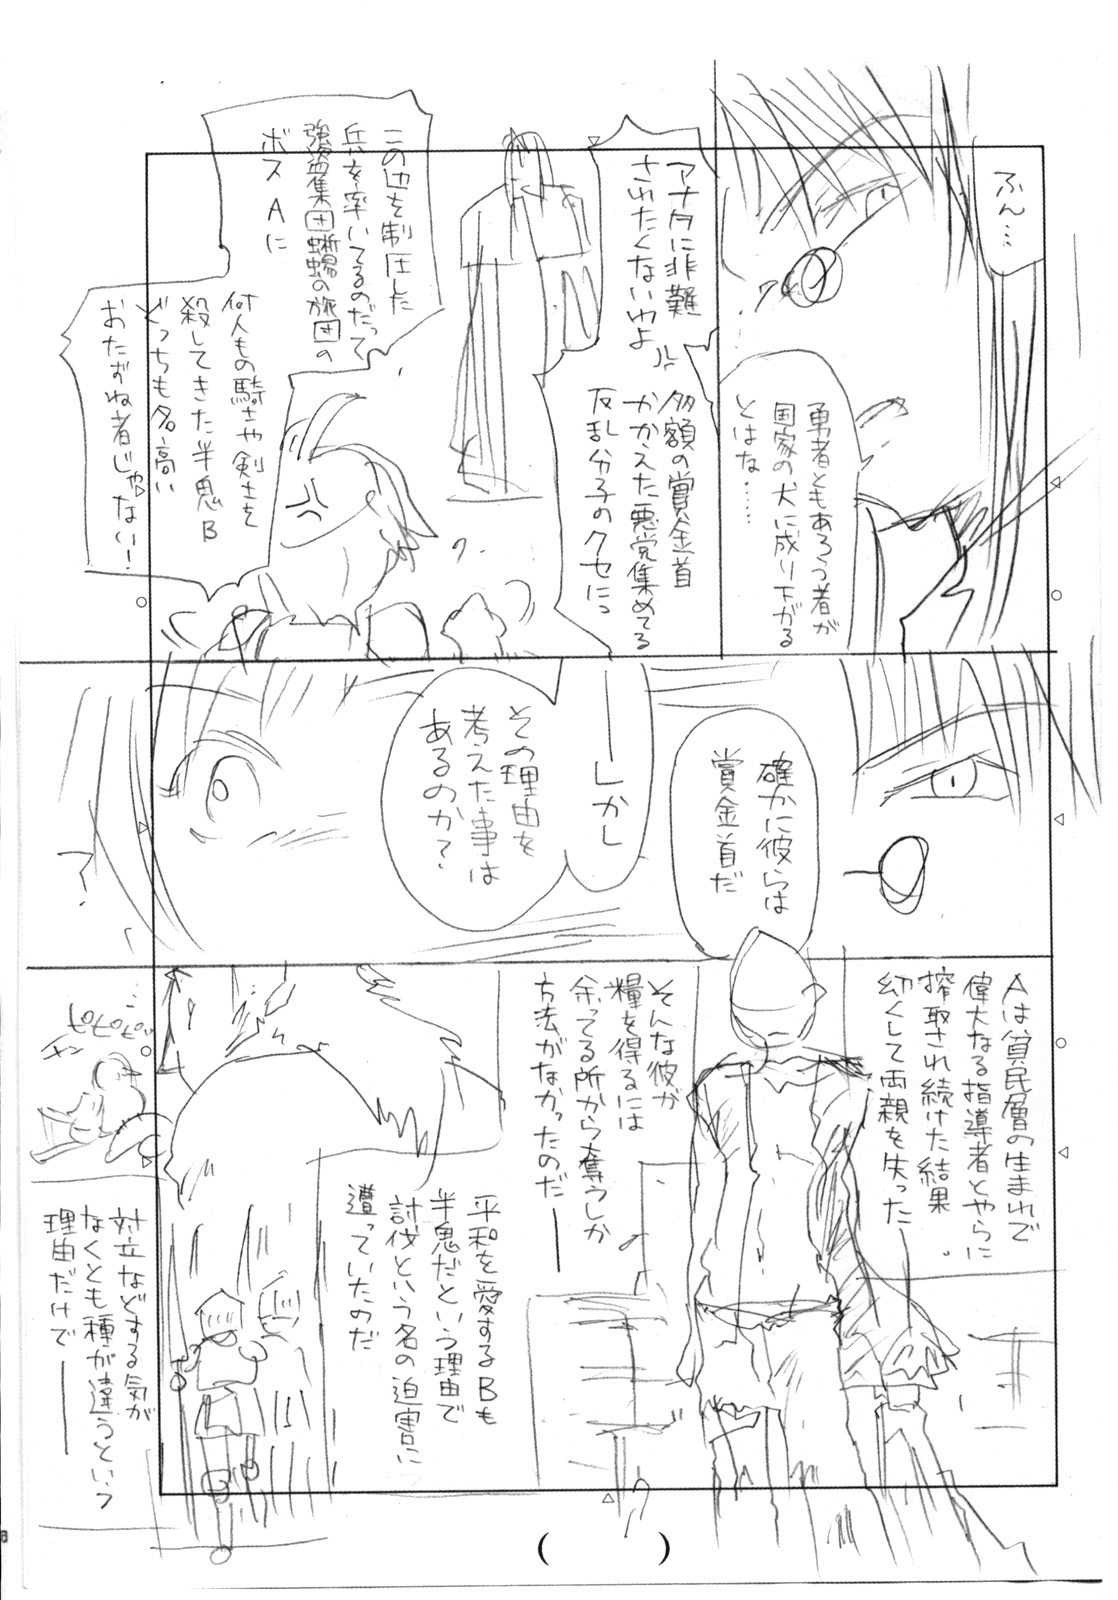 ふん…
勇者ともあろう者が
国家の犬に成り下がる
とはな……
アナタに非難
されたくないわよ
多額の賞金首
かかえた悪党集めてる
反乱分子のクセにっ
この辺を制圧した
兵を率いてるのだって
強盗集団蜥蜴の旅団の
ボスAに
何人もの騎士や剣士を
殺してきた半鬼B
どっちも名高い
おたずね者じゃない!
確かに彼らは
賞金首だ
――しかし
その理由を
考えた事は
あるのか?
Aは貧民層の生まれで
偉大なる指導者とやらに
搾取され続けた結果
幼くして両親を失った――
そんな彼が
糧を得るには
余ってる所から奪うしか
方法がなかったのだ――
平和を愛するBも
半鬼だという理由で
討伐という名の迫害に
遭っていたのだ
対立などする気が
なくとも種が違うという
理由だけで――